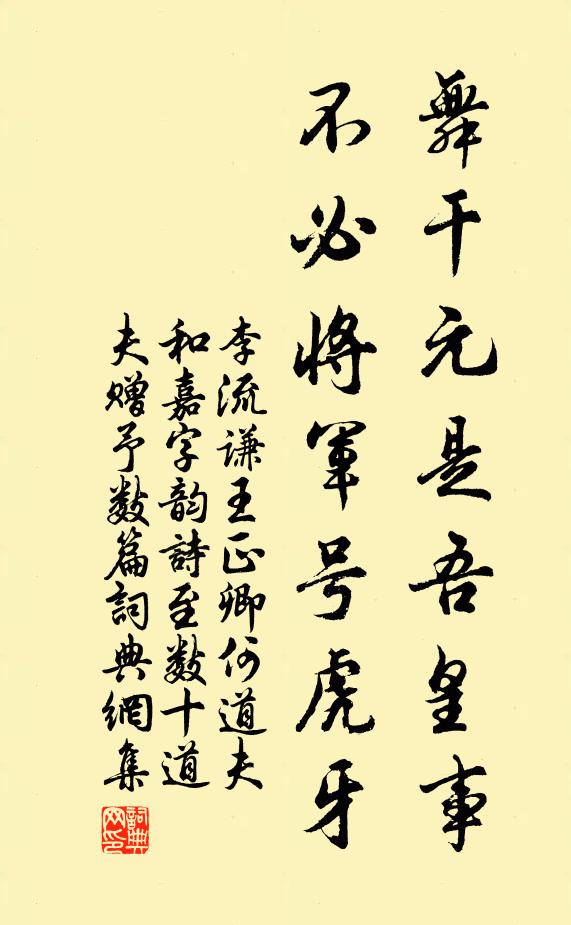 舞干元是吾皇事
不必将軍号虎牙
李流謙王正卿何道夫
和嘉字韵詩至数十道
夫赠予数篇詞典網集
詞典網印